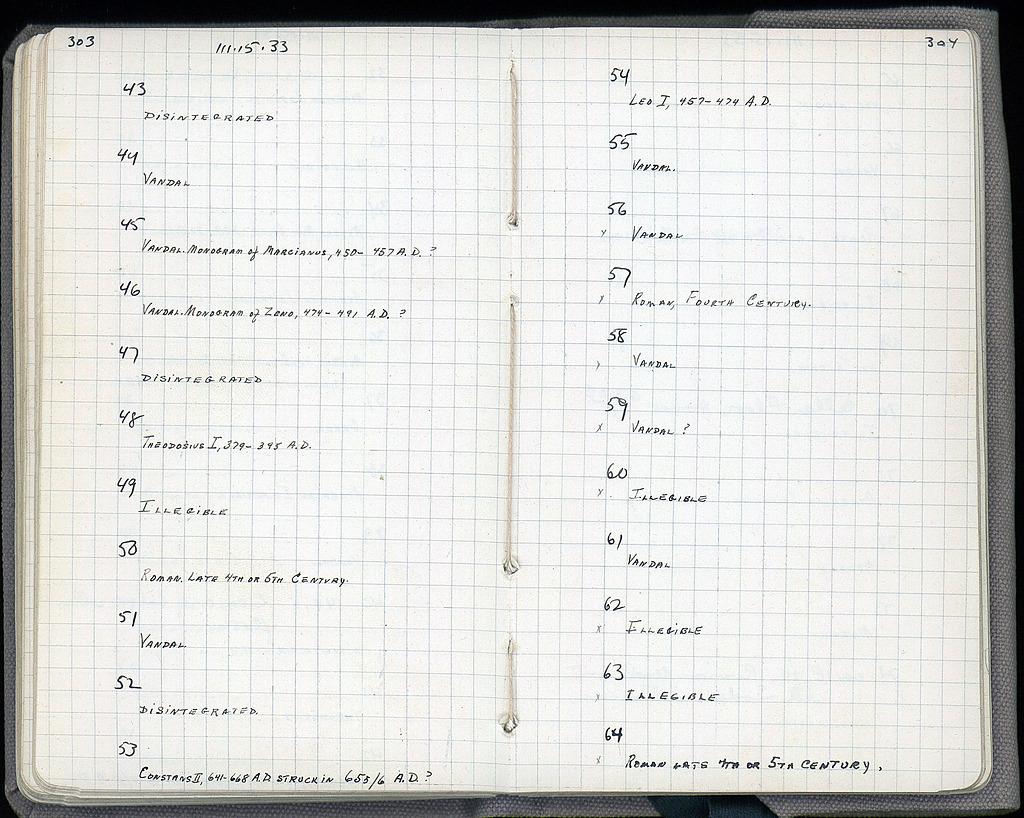 303
111.15.33
43
DISINTEGRATED
44
VANDAL
45
VANDAL. MONOGRAM of MARCIANUS, 450- 457 A.D. ?
46
VANDAL. MONOGRAM of ZENO, 474- 491 A.D. ?
47
DISINTEGRATED
48
THEODOSIUS I, 379- 395 A.D.
49
ILLEGIBLE
50
ROMAN. LATE 4TH OR 5TH CENTURY.
51
VANDAL.
52
DISINTEGRATED.
53
CONSTANS II, 641-668 A.D. STRUCK IN 655/6 A.D. ?
304
54
LEO I, 457- 474 A.D.
55
VANDAL.
56
x VANDAL
57
x ROMAN, FOURTH CENTURY.
58
x VANDAL
59
x VANDAL ?
60
x ILLEGIBLE
61
VANDAL
62
x ILLEGIBLE
63
x ILLEGIBLE
64
x ROMAN LATE 4TH OR 5TH CENTURY.